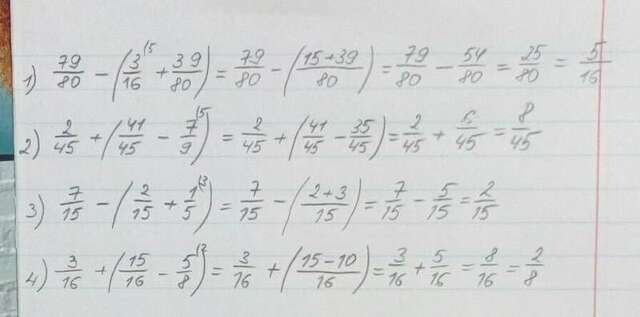 1) 79/80 − (3/16 ⁽⁵ + 39/80) = 79/80 − (15+39/80) = 79/80 − 54/80 = 25/80 = 5/16
2) 2/45 + (41/45 − 7/9 ⁽⁵) = 2/45 + (41/45 − 35/45) = 2/45 + 6/45 = 8/45
3) 7/15 − (2/15 + 1/5 ⁽³) = 7/15 − (2+3/15) = 7/15 − 5/15 = 2/15
4) 3/16 + (15/16 − 5/8 ⁽²) = 3/16 + (15−10/16) = 3/16 + 5/16 = 8/16 = 2/8